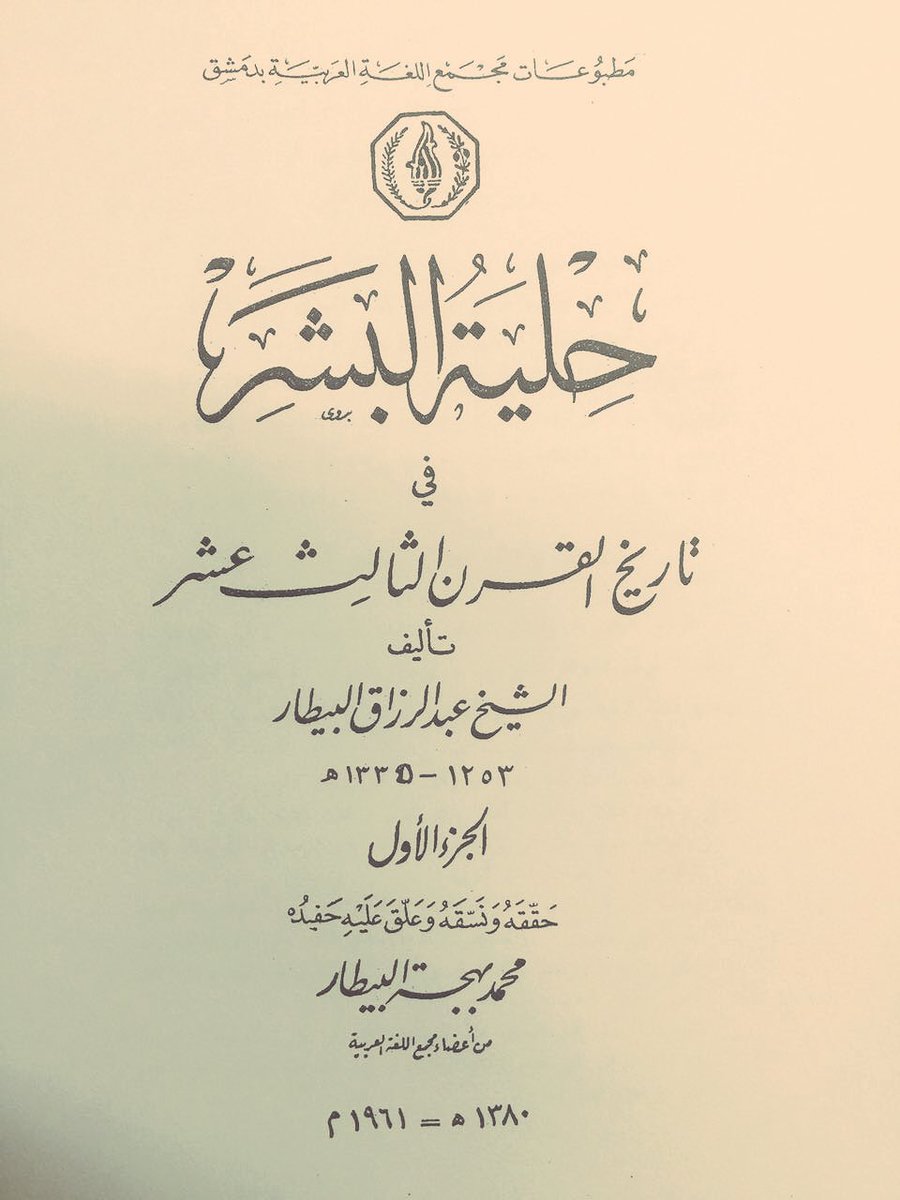 مَطبُوعَات مَجْمَع اللغَة العَربيَّة بدمَشِق
حِلية البَشَر
بروى
في
تاريخ القرن الثالث عشر
تأليف
الشيخ عبد الرزاق البيطار
١٢٥٣ – ١٣٣٥ هـ
الجزء الأول
حَقّقَهُ وَنَسّقَهُ وَعَلّقَ عَلَيْهِ حَفيدُه
محمد بهجة البيطار
من أعضاء مجمع اللغة العربية
١٣٨٠ هـ = ١٩٦١ م